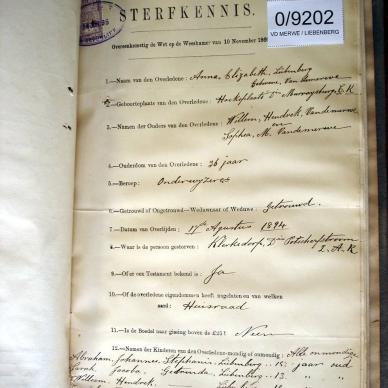 STERFKENNIS.
0/9202
VD MERWE / LIEBENBERG
Overeenkomstig de Wet op de Weeskamer van 10 November
1.—Naam van den Overledene: Anna Elizabeth Liebenberg
Geboren, Van der Merwe
2.—Geboorteplaats van den Overledene: Hoekplaats Murraysburg K.K
3.—Namen der Ouders van den Overledene: Willem Hendrik Vandemerwe
en
Sophia, M. Vandemerwe
4.—Ouderdom van den Overledene: 36 jaar
5.—Beroep: Onderwyzeres
6.—Getrouwd of Ongetrouwd—Weduwnaar of Weduwe: Getrouwd.
7.—Datum van Overlijden: 17de Augustus 1894
8.—Waar is de persoon gestorven: Klerksdorp, Dis Potchefstroom
Z. A. R
9.—Of er een Testament bekend is: Ja
10.—Of de overledene eigendommen heeft nagelaten en van welken
aard: Huisraad
11.—Is de Boedel naar gissing boven de £15? Neen
12.—Namen der Kinderen van den Overledene—mondig of onmondig: Alle onmondig
Abraham Johannes Stephanus Liebenberg 15 jaar oud
Sarah Jacoba Gertruida Liebenberg 13 "
Willem Hendrik Liebenberg